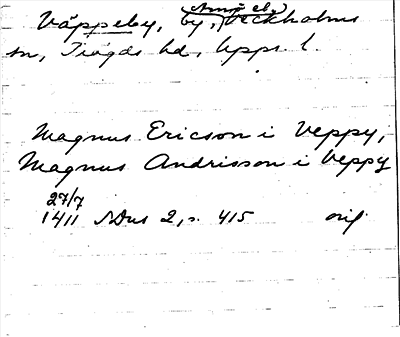 Väppeby, by, Veckholms
sn, Trögds hd, Upps. l.
Magnus Ericson i Veppy,
Magnus Andrisson i Veppy
27/7
1411 SDns 2, s. 415 orig.